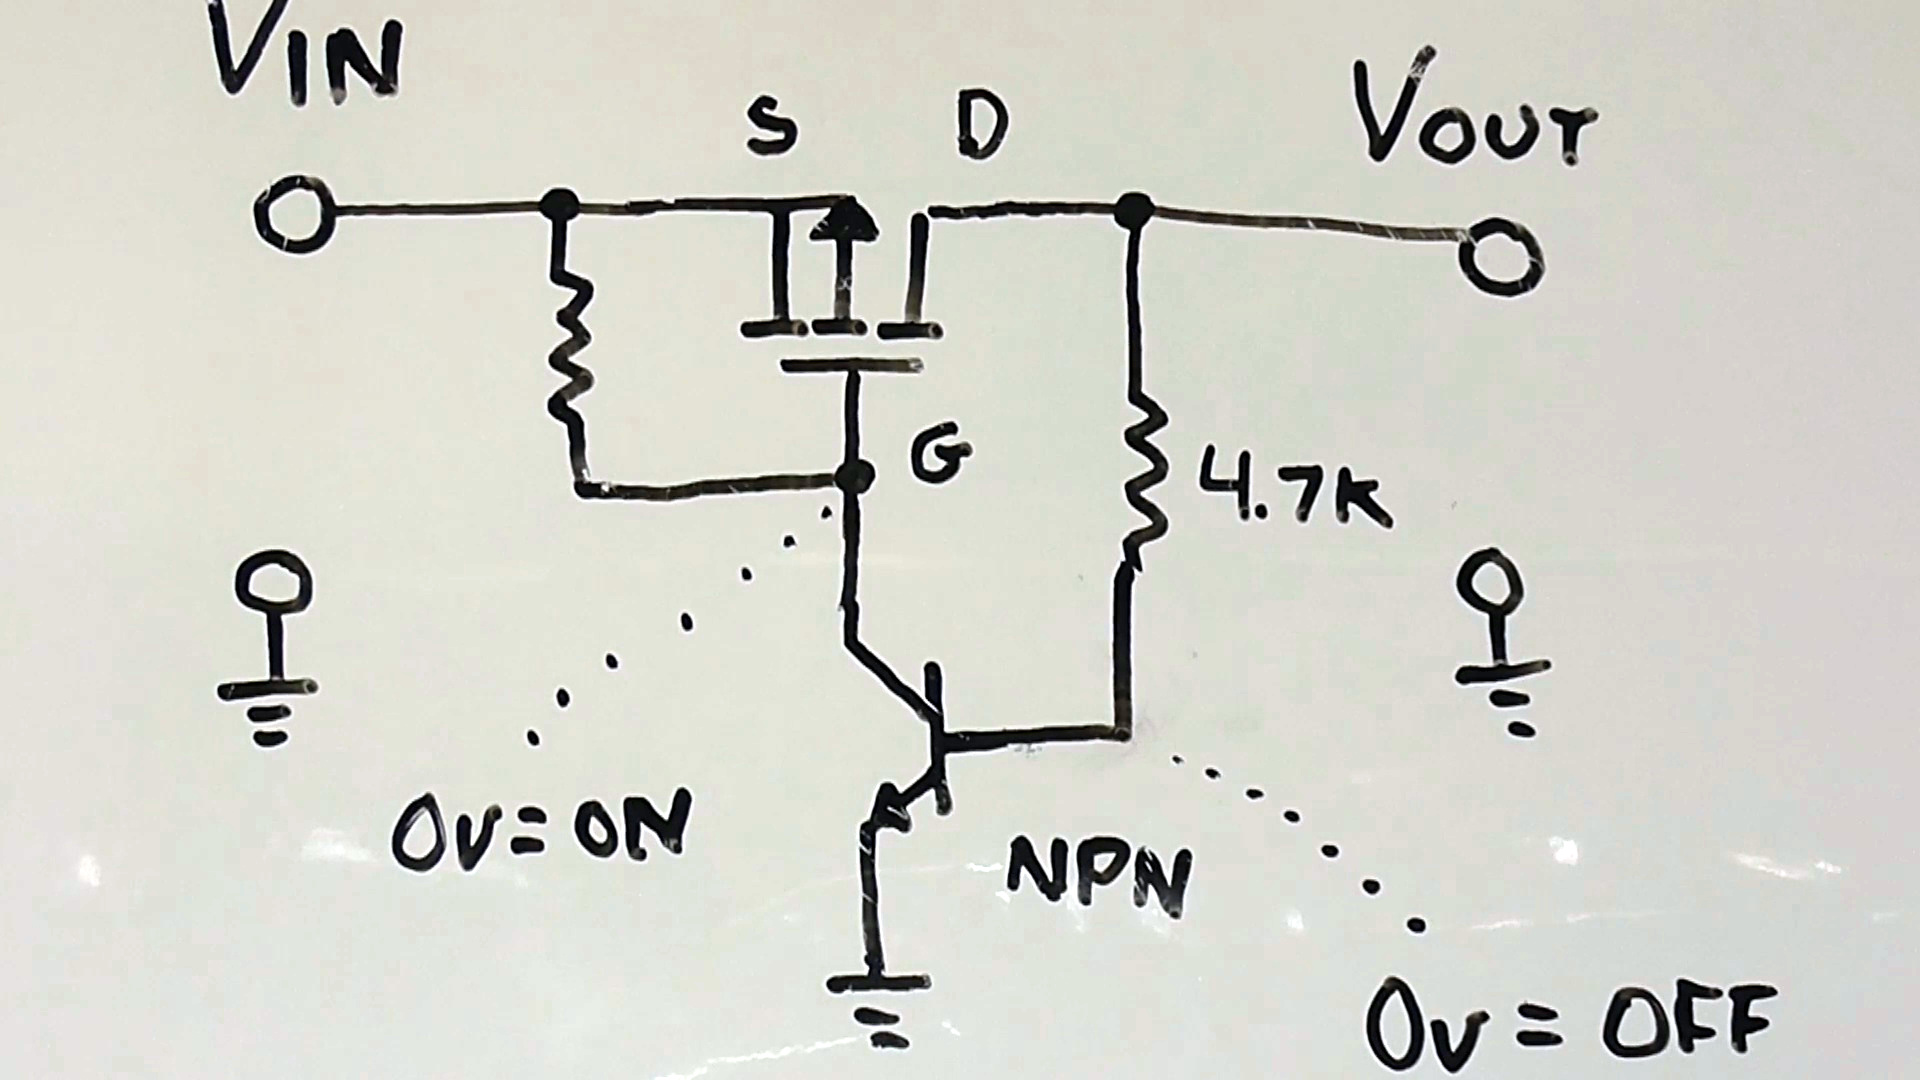 VIN
S
D
VOUT
G
4.7K
0V = ON
NPN
0V = OFF